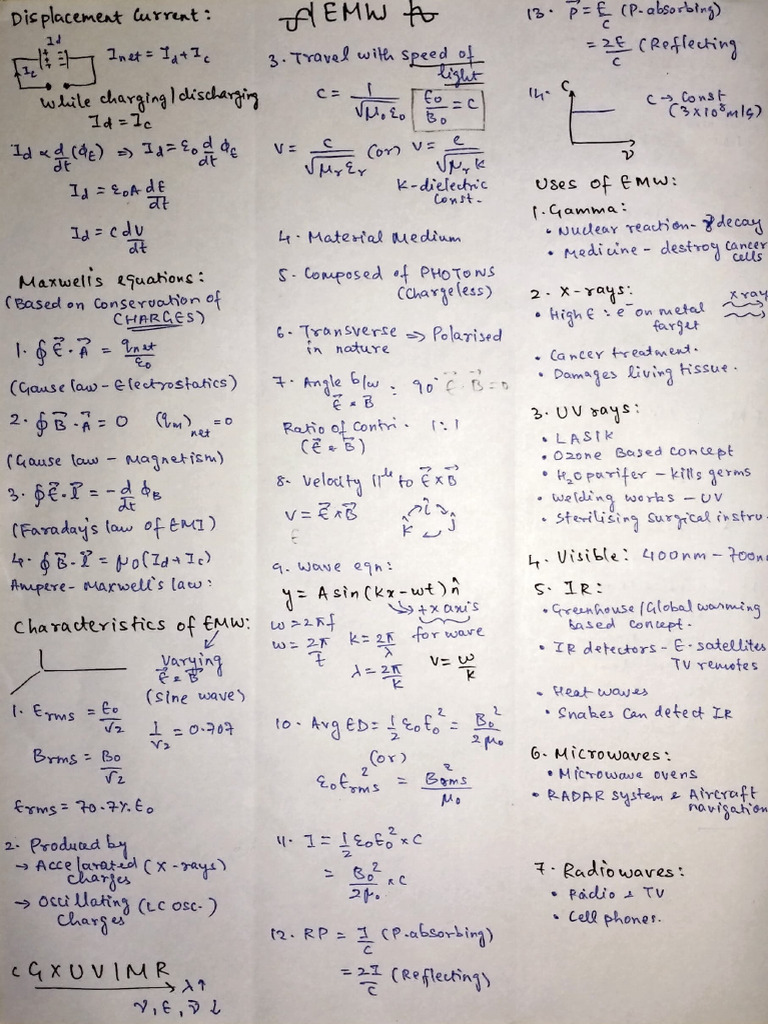 Displacement Current:
Id
Ic
Inet = Id + Ic
while charging/discharging
Id = Ic
Id ∝ d/dt (ϕE) ⇒ Id = ε0 d/dt ϕE
Id = ε0A dE/dt
Id = c dv/dt
Maxwell's equations:
(Based on Conservation of
CHARGES)
1. ∮ E⃗ . A⃗ = qnet/ε0
(Gauss law - Electrostatics)
2. ∮ B⃗ . A⃗ = 0 (qm)net = 0
(Gauss law - Magnetism)
3. ∮ E⃗ . l⃗ = - d/dt ϕB
(Faraday's law of EMI)
4. ∮ B⃗ . l⃗ = μ0 (Id + Ic)
Ampere - Maxwell's law:
Characteristics of EMW:
Varying
E⃗ & B⃗
(Sine wave)
1. Erms = E0/√2 1/√2 = 0.707
Brms = B0/√2
Erms = 70.7% E0
2. Produced by
→ Accelarated (X-rays)
Charges
→ Oscillating (LC Osc.)
Charges
C G X U V I M R
→ λ↑
ν, E, ν̄ ↓
EMW
3. Travel with speed of
light
C = 1/√μ0ε0 E0/B0 = C
V = c/√μrεr (or) V = c/√μrK
K-dielectric
Const.
4. Material Medium
5. Composed of PHOTONS
(Chargeless)
6. Transverse ⇒ Polarised
in nature
7. Angle b/w : 90° E⃗ . B⃗ = 0
E⃗ & B⃗
Ratio of Contri. 1:1
(E⃗ & B⃗)
8. Velocity ||le to E⃗ x B⃗
V = E⃗ x B⃗
î
k̂ ĵ
9. Wave eqn:
y = A sin(Kx - wt) n̂
→ +x axis
for wave
ω = 2πf
ω = 2π/t K = 2π/λ
λ = 2π/K V = ω/K
10. Avg ED = 1/2 ε0E0² = B0²/2μ0
(or)
ε0Erms² = Brms²/μ0
11. I = 1/2 ε0E0² x C
= B0²/2μ0 x C
12. RP = I/C (P.absorbing)
= 2I/C (Reflecting)
13. P⃗ = E/C (P.absorbing)
= 2E/C (Reflecting
14. C
ν
C → Const
(3x10⁸ m/s)
Uses of EMW:
1. Gamma:
• Nuclear reaction - γ decay
• Medicine - destroy cancer
cells
2. X-rays:
• High E : e⁻ on metal
target
x ray
• Cancer treatment.
• Damages living tissue.
3. UV rays:
• LASIK
• Ozone Based concept
• H2O purifer - kills germs
• Welding works - UV
• Sterilising Surgical instru.
4. Visible: 400nm - 700n
5. IR:
• Greenhouse/Global warming
based concept.
• IR detectors - E. satellites
TV remotes
• Heat waves
• Snakes Can detect IR
6. Microwaves:
• Microwave ovens
• RADAR system & Aircraft
navigation
7. Radiowaves:
• Radio & TV
• Cell phones.